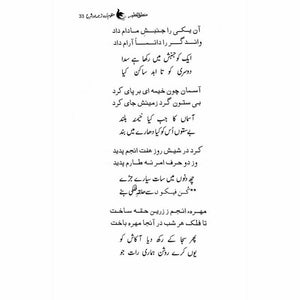 منطق الطیر
33
آن یکی را جنبش مادام داد
واندگر را دائماً آرام داد
ایک کو جنبش میں رکھا ہے سدا
دوسری کو تا ابد ساکن کیا
آسمان چون خیمه ای بر پای کرد
بی ستون کرد زمینش جای کرد
آسماں کا جب کیا خیمہ بلند
بے ستوں اس کو کیا دھارے میں بند
کرد در شیش روز هفت انجم پدید
وز دو حرف امر نه طارم پدید
چھ دنوں میں سات سیارے جڑے
کن فیکوں سے فلکی بنے
مهره انجم ززرین حقه ساخت
تا فلک هر شب در آنجا مهره باخت
پھر سجا کے رکھ دیا آکاش کو
یوں کرے روشن ہماری رات جو